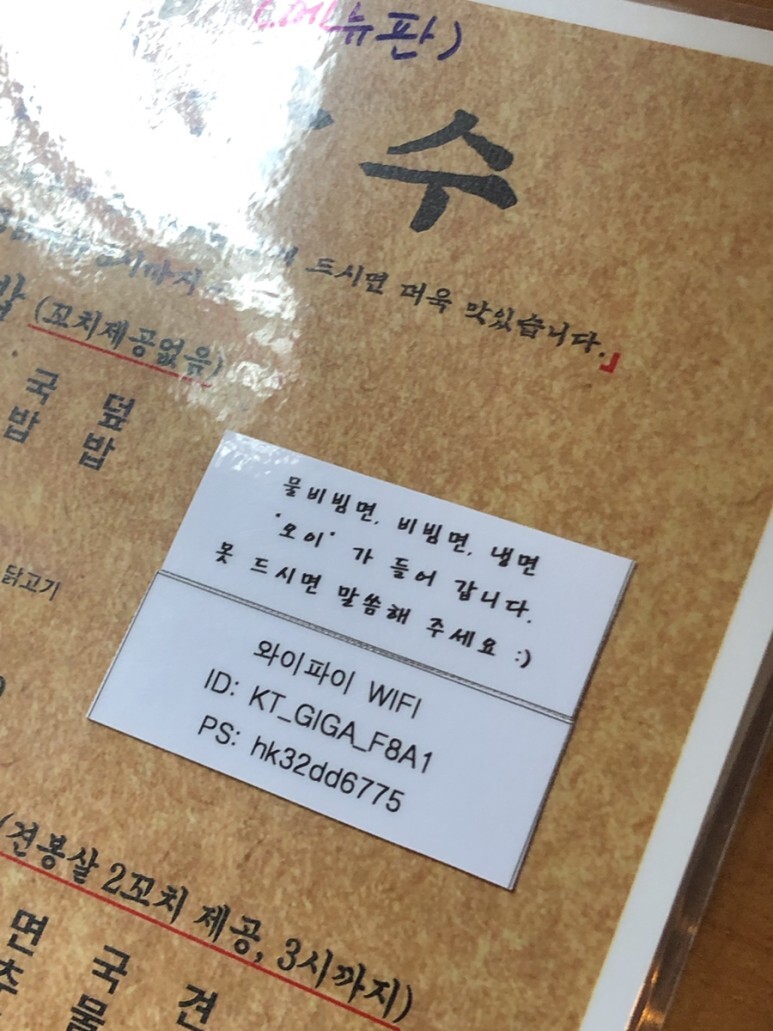 (메뉴판)
수
드시면 더욱 맛있습니다.」
(꼬치제공없음)
국 덮
밥 밥
닭고기
물비빔면, 비빔면, 냉면
'오이' 가 들어 갑니다.
못 드시면 말씀해 주세요 :)
와이파이 WIFI
ID: KT_GIGA_F8A1
PS: hk32dd6775
(견봉살 2꼬치 제공, 3시까지)
면 국 견
추 물